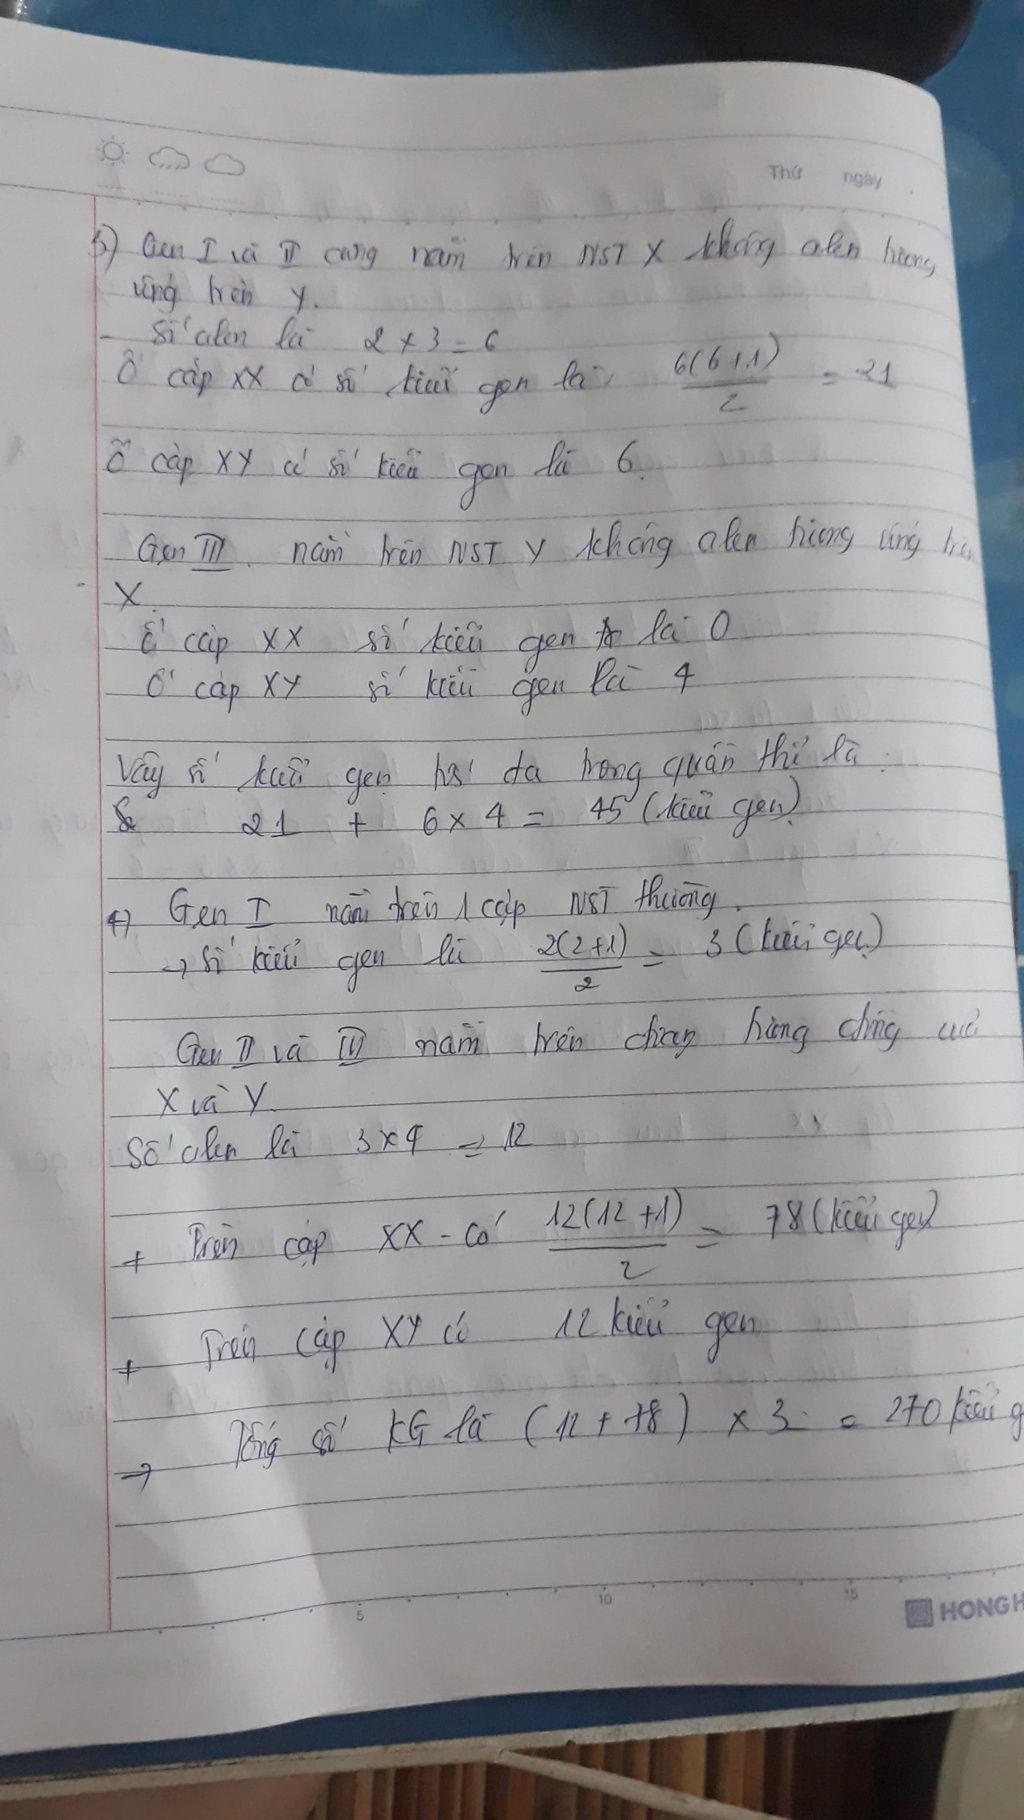 Thứ ngày
3) Gen I và II cùng nằm trên NST X không alen tương
ứng trên Y.
- Số alen là 2 x 3 = 6
Ở cặp XX có số kiểu gen là: 6(6+1)/2 = 21
Ở cặp XY có số kiểu gen là 6.
Gen III. nằm trên NST Y không alen tương ứng trên
X.
Ở cặp XX số kiểu gen là 0
Ở cặp XY số kiểu gen là 4
Vậy số kiểu gen tối đa trong quần thể là:
21 + 6 x 4 = 45 (kiểu gen)
4) Gen I nằm trên 1 cặp NST thường.
→ Số kiểu gen là 2(2+1)/2 = 3 (kiểu gen)
Gen II và III nằm trên tương đồng của
X và Y
Số alen là 3 x 4 = 12
+ Trên cặp XX - có 12(12+1)/2 = 78 (kiểu gen)
+ Trên cặp XY có 12 kiểu gen
→ Tổng số KG là (12 + 78) x 3 = 270 kiểu g
5 10 15
HONG H